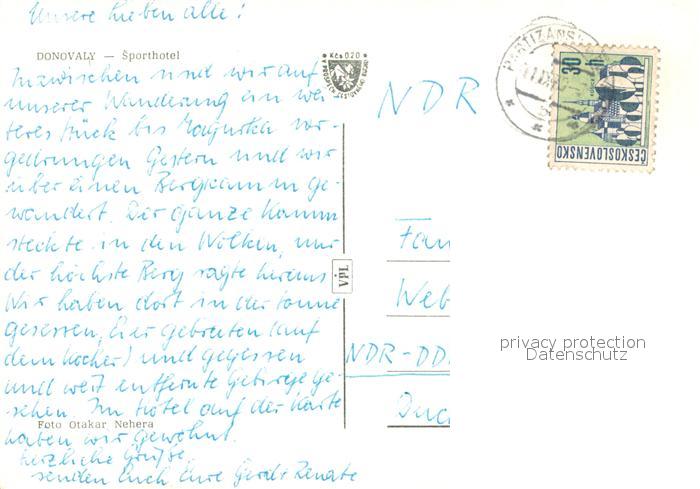 Unsere Lieben alle!
DONOVALY — Športhotel
Kčs 0,20
Inzwischen sind wir auf
unserer Wanderung ein wei-
teres Stück bis Magurka vor-
gedrungen Gestern sind wir
über einen Bergkamm ge-
wandert. Der ganze Kamm
steckte in den Wolken, nur
der höchste Berg ragte heraus
Wir haben dort in der Sonne
gesessen, Eier gebraten (auf
dem Kocher) und gegessen
und weit entfernte Gebirge ge-
sehen. Im Hotel auf der Karte
haben wir gewohnt.
Foto Otakar Nehera
Herzliche Grüße,
senden Euch Eure Gerd + Renate
VPL
NDR
PARTIZÁNSK
30 h
ČESKOSLOVENSKO
Fam
Web
NDR-DD
privacy protection
Datenschutz